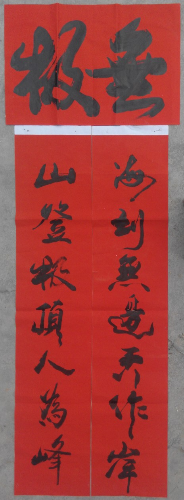 無極
海到無邊天作岸
山登极頂人為峰